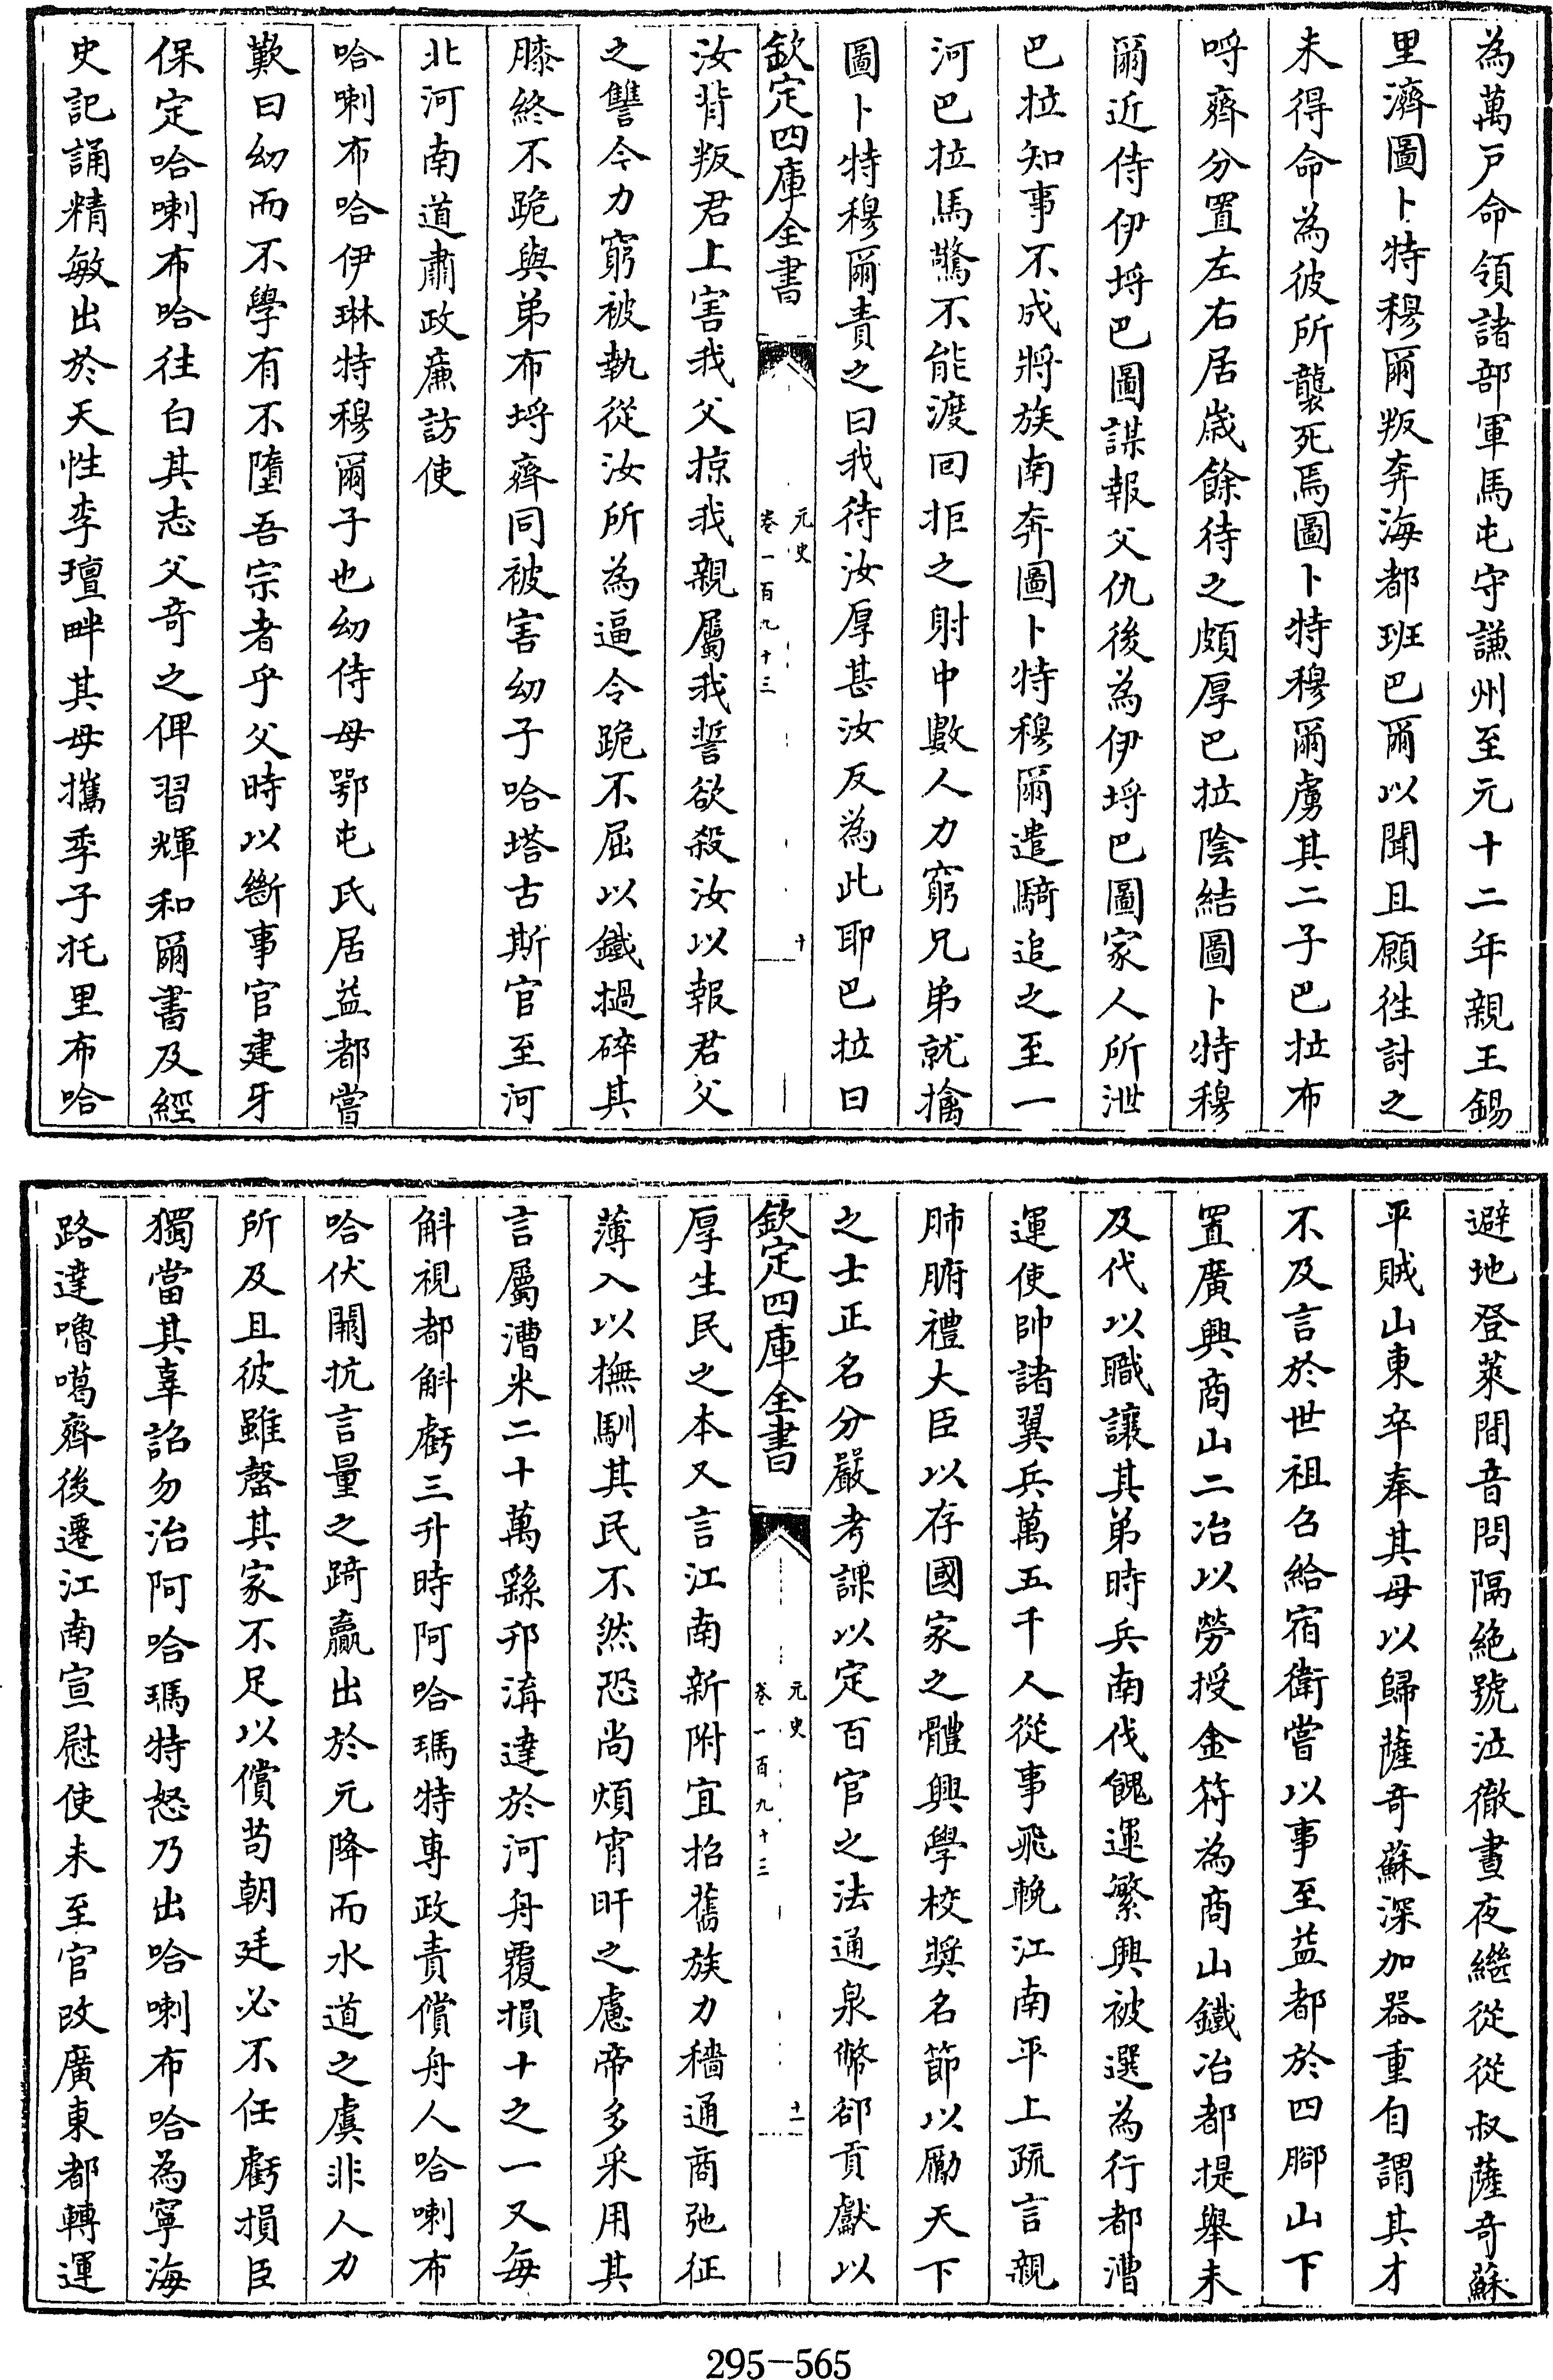 為萬戸命領諸部軍馬屯守謙州至元十二年親王錫
里濟圖卜特穆爾叛奔海都班巴爾以聞且願徃討之
未得命為彼所襲死焉圖卜特穆爾虜其二子巴拉布
哷齊分置左右居歳餘待之頗厚巴拉陰結圖卜特穆
爾近侍伊埒巴圖謀報父仇後為伊埒巴圖家人所泄
巴拉知事不成將族南奔圖卜特穆爾遣騎追之至一
河巴拉馬驚不能渡回拒之射中數人力窮兄弟就擒
圖卜特穆爾責之曰我待汝厚甚汝反為此耶巴拉曰
欽定四庫全書
元史
卷一百九十三
十
汝背叛君上害我父掠我親屬我誓欲殺汝以報君父
之讐今力窮被執從汝所為逼令跪不屈以鐵撾碎其
膝終不跪與弟布埒齊同被害幼子哈塔古斯官至河
北河南道肅政廉訪使
哈喇布哈伊琳特穆爾子也幼侍母鄂屯氏居益都嘗
歎曰幼而不學有不墮吾宗者乎父時以斷事官建牙
保定哈喇布哈往白其志父竒之俾習輝和爾書及經
史記誦精敏出於天性李璮畔其母攜季子托里布哈
避地登萊間音問隔絶號泣徹晝夜繼從從叔薩竒蘇
平賊山東卒奉其母以歸薩竒蘇深加器重自謂其才
不及言於世祖召給宿衛嘗以事至益都於四腳山下
置廣興商山二冶以勞授金符為商山鐵冶都提舉未
及代以職讓其弟時兵南伐餽運繁興被選為行都漕
運使帥諸翼兵萬五千人從事飛輓江南平上疏言親
肺腑禮大臣以存國家之體興學校奬名節以勵天下
之士正名分嚴考課以定百官之法通泉幣郤貢獻以
欽定四庫全書
元史
卷一百九十三
十一
厚生民之本又言江南新附宜招舊族力穡通商弛征
薄入以撫馴其民不然恐尚煩宵旰之慮帝多采用其
言屬漕米二十萬繇邗溝達於河舟覆損十之一又每
斛視都斛虧三升時阿哈瑪特專政責償舟人哈喇布
哈伏闕抗言量之踦贏出於元降而水道之虞非人力
所及且彼雖罄其家不足以償苟朝廷必不任虧損臣
獨當其辜詔勿治阿哈瑪特怒乃出哈喇布哈為寧海
路達嚕噶齊後遷江南宣慰使未至官改廣東都轉運
295-565